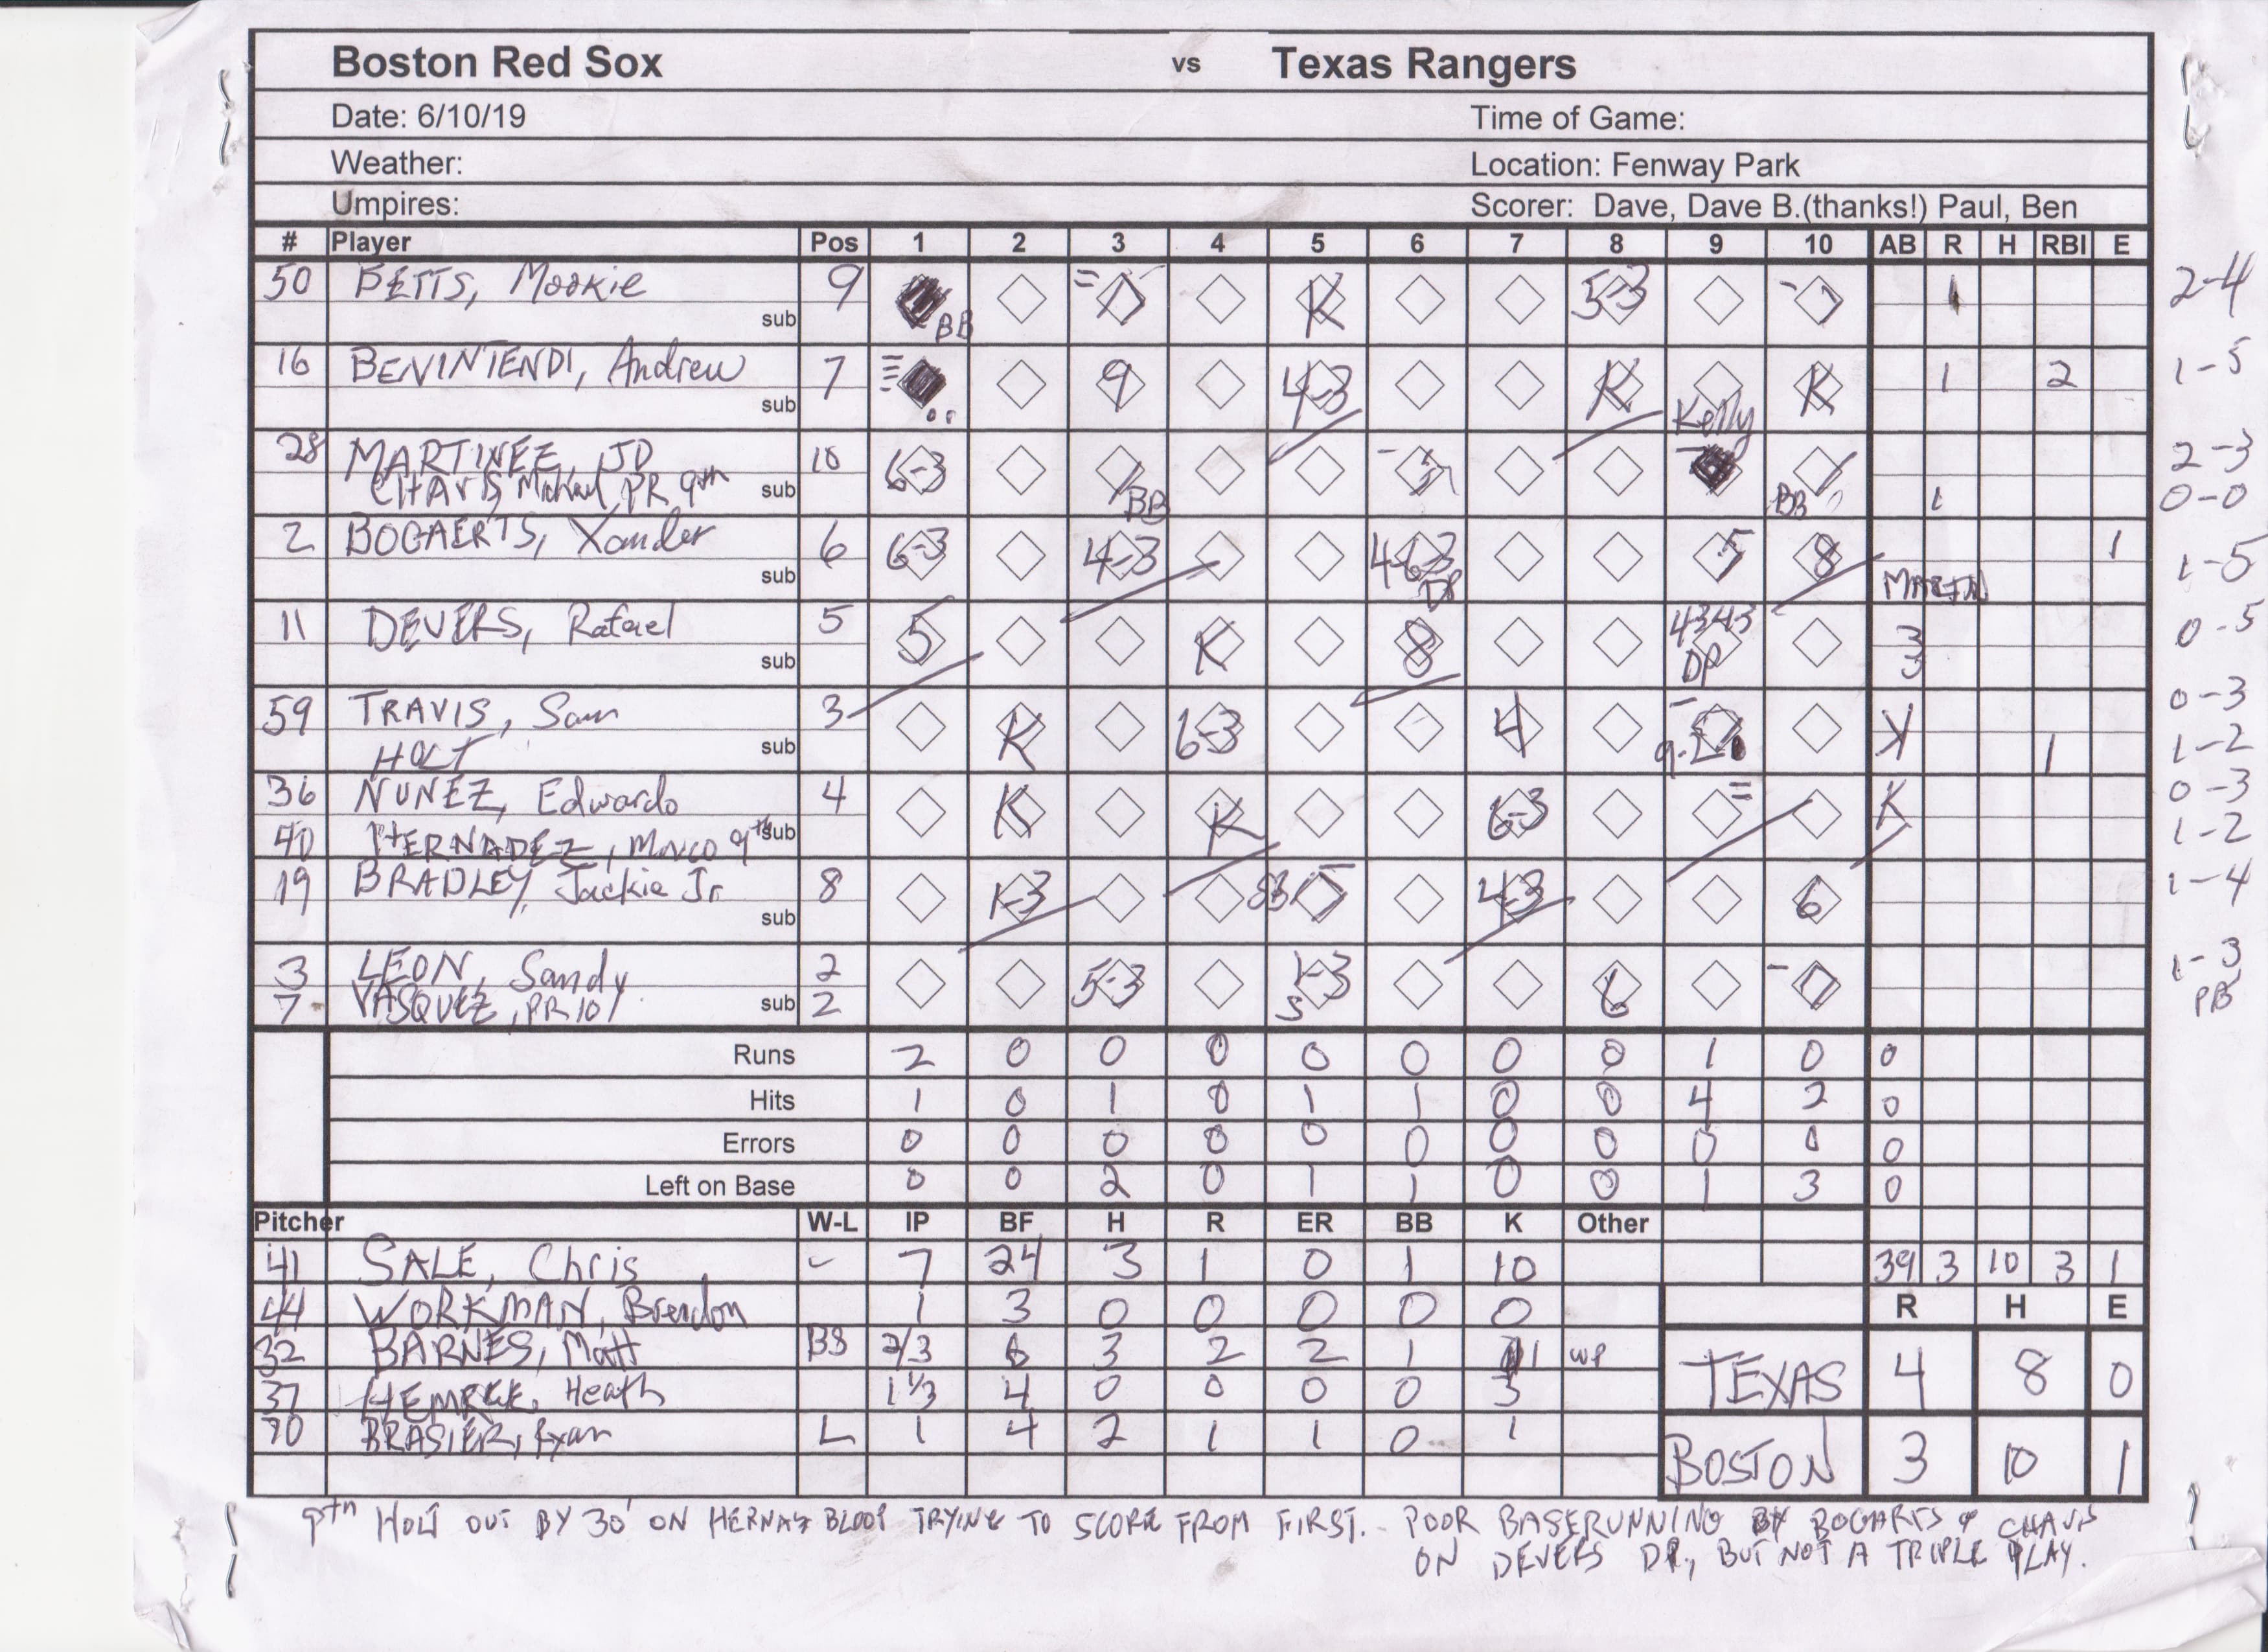 Boston Red Sox vs Texas Rangers
Date: 6/10/19 Time of Game:
Weather: Location: Fenway Park
Umpires: Scorer: Dave, Dave B.(thanks!) Paul, Ben
# Player Pos 1 2 3 4 5 6 7 8 9 10 AB R H RBI E
50 BETTS, Mookie 9 BB = K 5-3 - 1 2-4
sub
16 BENINTENDI, Andrew 7 9 4-3 K K 1 2 1-5
sub Kelly
28 MARTINEZ, JD 10 6-3 - - 2-3
CHAVIS, Michael, PR 9th sub BB BB 1 0-0
2 BOGAERTS, Xander 6 6-3 4-3 4-6-3 5 8 1 1-5
sub DP MARTIN
11 DEVERS, Rafael 5 5 K 8 4343 3 0-5
sub DP 3
59 TRAVIS, Sam 3 K 6-3 4 - K 0-3
HOLT sub 1 1-2
36 NUNEZ, Edwardo 4 K K 6-3 = K 0-3
40 HERNADEZ, Marco 9th sub 1-2
19 BRADLEY, Jackie Jr 8 1-3 SB 4-3 6 1-4
sub
3 LEON, Sandy 2 5-3 1-3 6 - 1-3
7 VASQUEZ, PR 10 sub 2 S PB
Runs 2 0 0 0 0 0 0 0 1 0 0
Hits 1 0 1 0 1 1 0 0 4 2 0
Errors 0 0 0 0 0 0 0 0 0 0 0
Left on Base 0 0 2 0 1 1 0 0 1 3 0
Pitcher W-L IP BF H R ER BB K Other
41 SALE, Chris - 7 24 3 1 0 1 10 39 3 10 3 1
44 WORKMAN, Brendon 1 3 0 0 0 0 0 R H E
32 BARNES, Matt BS 2/3 6 3 2 2 1 1 WP
TEXAS 4 8 0
37 HEMBREE, Heath 1 1/3 4 0 0 0 0 3
70 BRASIER, Ryan L 1 4 2 1 1 0 1
BOSTON 3 10 1
9th HOLT OUT BY 30' ON HERNAZ BLOOP TRYING TO SCORE FROM FIRST. POOR BASERUNNING BY BOGARTS & CHAVIS
ON DEVERS DP, BUT NOT A TRIPLE PLAY.